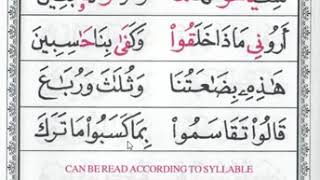 أَرُونِي مَاذَا خَلَقُواْ وَكَفَىٰ بِنَا حَاسِبِينَ
هَٰذِهِۦ بِضَاعَتُنَا وَثُلَٰثَ وَرُبَاعَ
قَالُواْ تَقَاسَمُواْ بِمَا كَسَبُواْ مَا تَرَكَ
CAN BE READ ACCORDING TO SYLLABLE